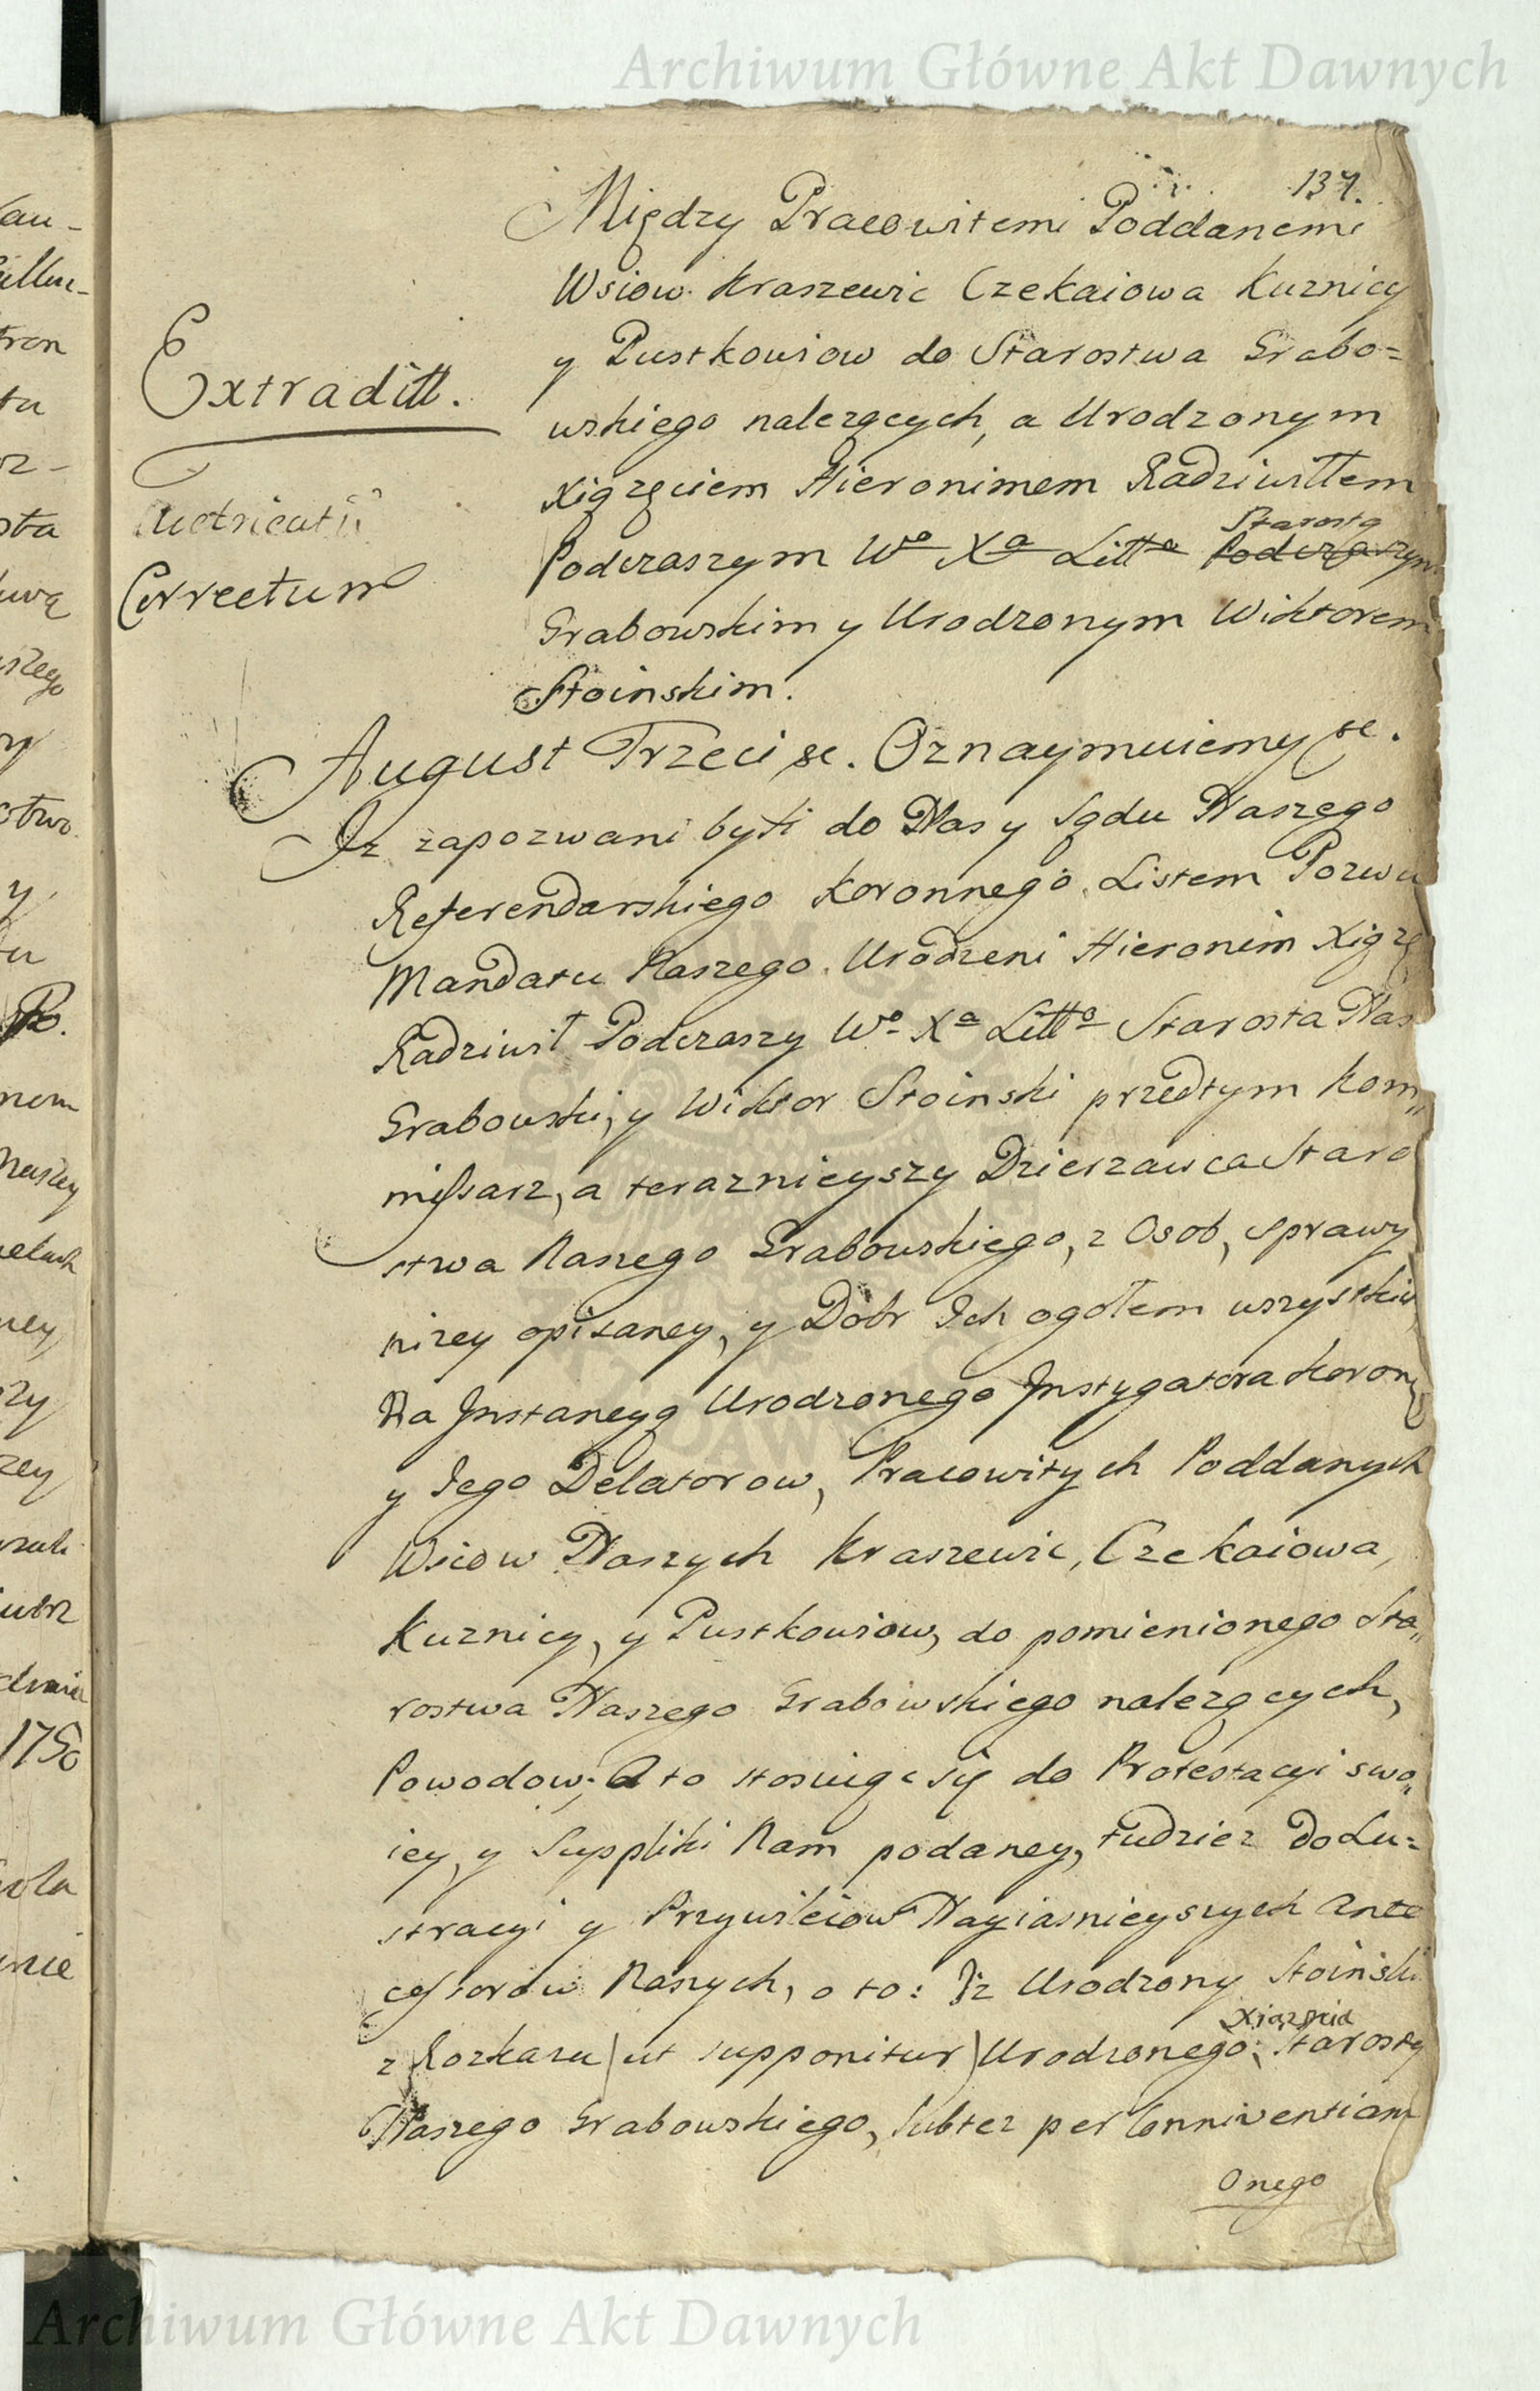 Archiwum Główne Akt Dawnych
137.
Między Pracowitemi Poddanemi
Wsiow Kraszewic Czekaiowa Kuznicy
y Pustkowiow do Starostwa Grabo=
wskiego nalezących, a Urodzonym
Xiązęciem Hieronimem Radziwiłłem
Starostą
Podczaszym Wo Xa Litto Podczaszym
Grabowskim y Urodzonym Wiktorem
Stoinskim.
Extraditt.
Correctum
August Trzeci &c. Oznaymuiemy &c.
Iz zapozwani byli do Nas y Sądu Naszego
Referendarskiego Koronnego, Listem Pozwu
Mandatu Naszego. Urodzeni Hieronim Xiąze
Radziwił Podczaszy Wo Xa Litto Starosta Nas
Grabowski, y Wiktor Stoinski przedtym Kom„
missarz, a teraznieyszy Dzierzawca Staro
stwa Naszego Grabowskiego, z Osob, sprawy
nizey opisaney, y Dobr Ich ogołem wszystkich
Na Instancyą Urodzonego Instygatora Koron
y Iego Delatorow, Pracowitych Poddanych
Wsiow Naszych Kraszewic, Czekaiowa,
Kuznicy, y Pustkowiow, do pomienionego Sta„
rostwa Naszego Grabowskiego nalezących,
Powodow; A to stosuiąc się do Protestacyi swo„
iey, y Suppliki Nam podaney, tudziez do Lu=
stracyi y Przywileiow Nayiasnieyszych Ante
cessorow Naszych, o to: Iz Urodzony Stoinski
Xiązęcia
z Rozkazu (ut supponitur) Urodzonego Starosty
Naszego Grabowskiego, lubtez per Conniventiam
Onego
Archiwum Główne Akt Dawnych